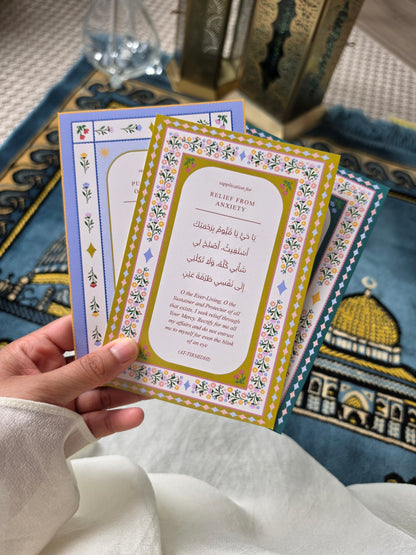 supplication for
RELIEF FROM
ANXIETY
يَا حَيُّ يَا قَيُّومُ بِرَحْمَتِكَ
أَسْتَغِيثُ، أَصْلِحْ لِي
شَأْنِي كُلَّهُ، وَلَا تَكِلْنِي
إِلَى نَفْسِي طَرْفَةَ عَيْنٍ
O the Ever-Living, O the
Sustainer and Protector of all
that exists, I seek relief through
Your Mercy. Rectify for me all
my affairs and do not entrust
me to myself for even the blink
of an eye
(AT-TIRMIDHI)